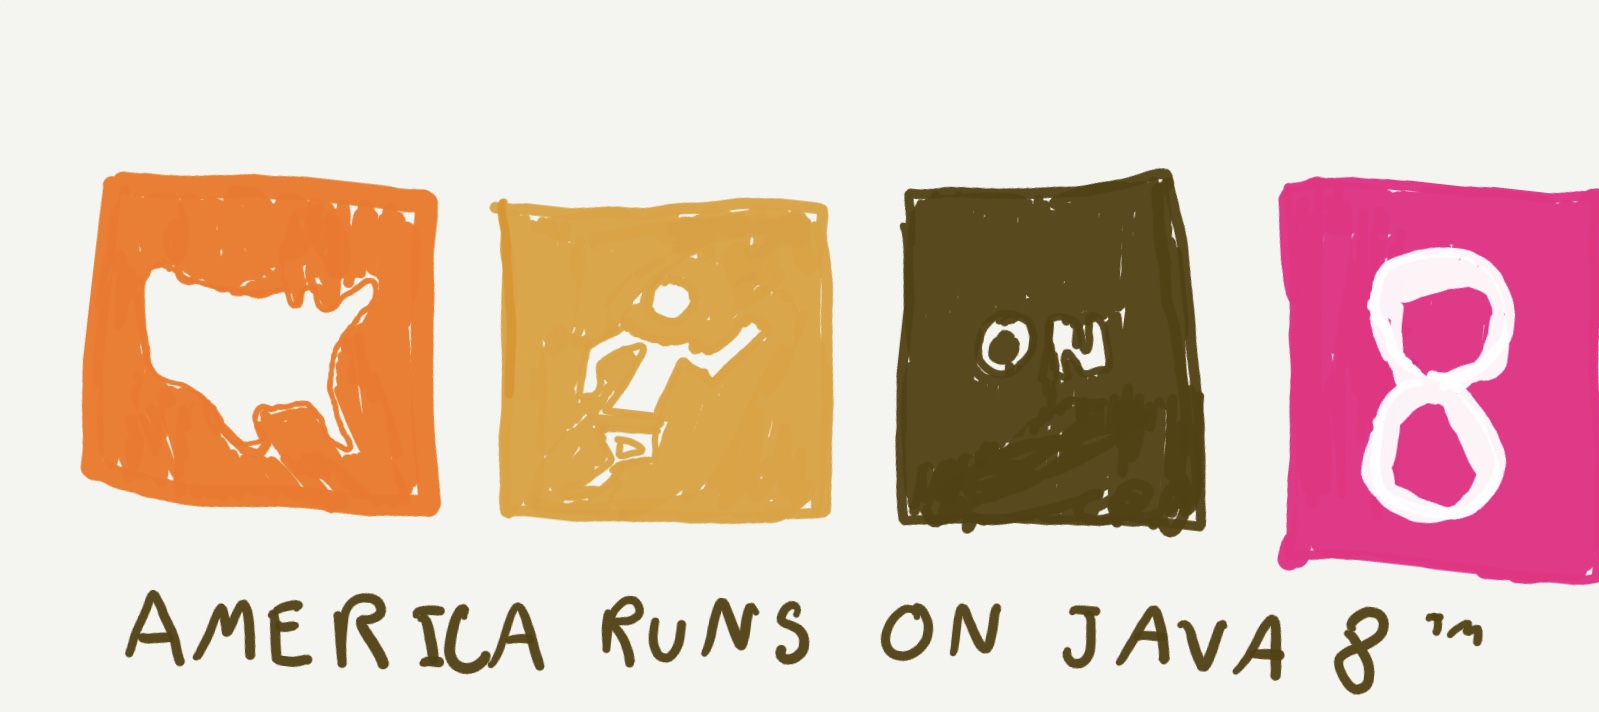 ON 8
AMERICA RUNS ON JAVA 8™